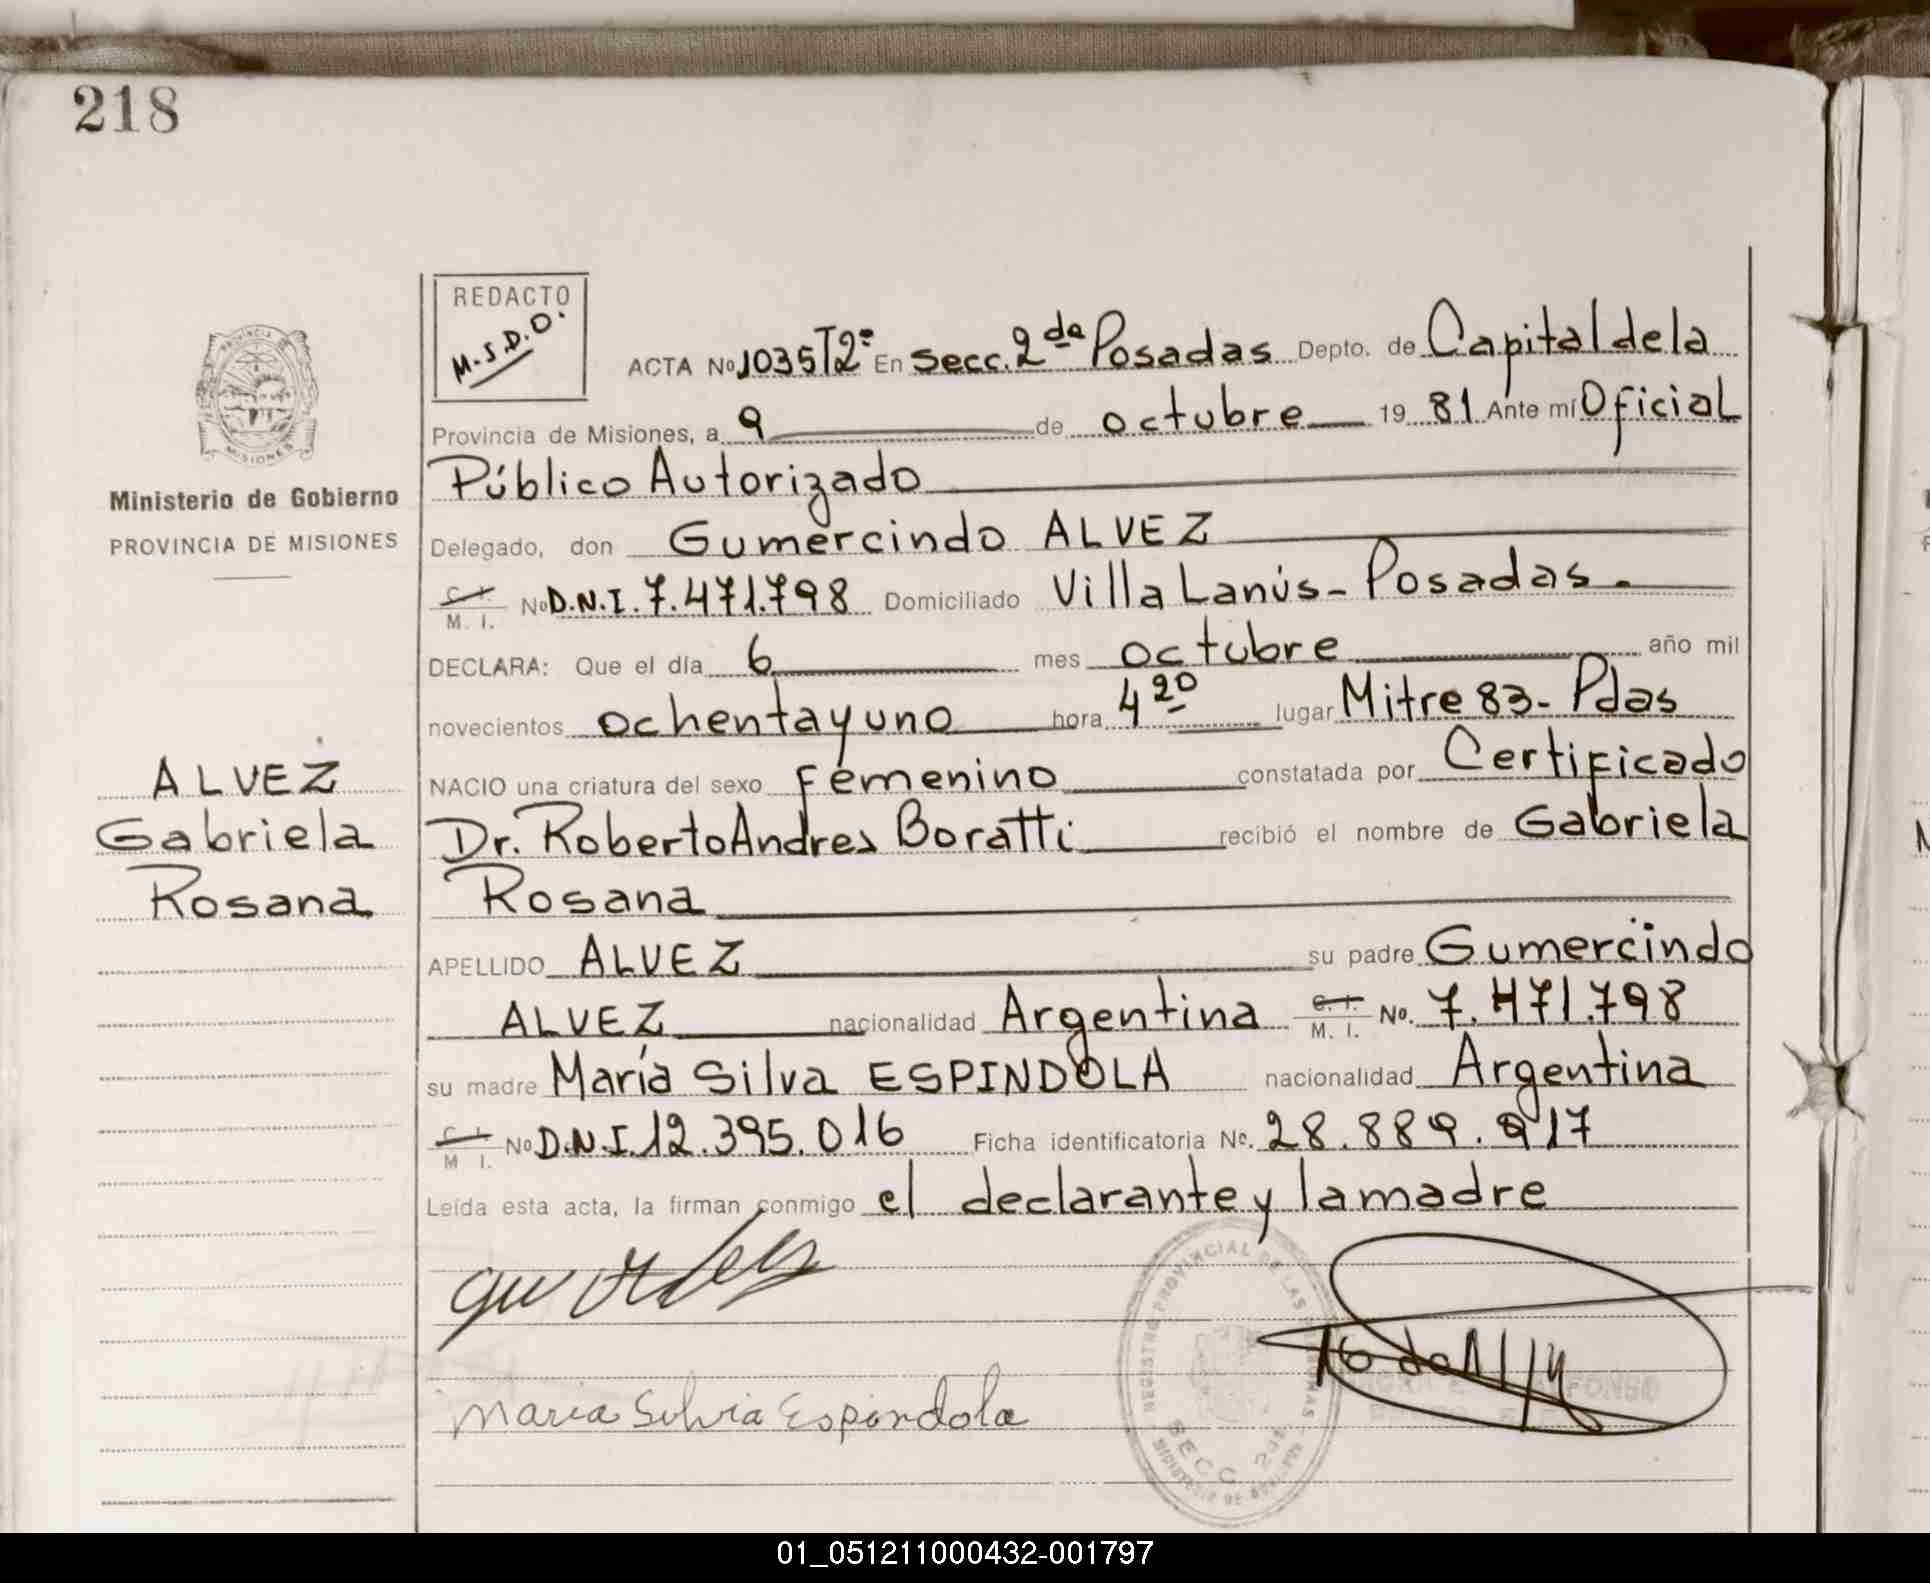 218
REDACTO
M.S.D.O.
ACTA No 1035 T2º En Secc. 2da Posadas Depto. de Capital de la
Provincia de Misiones, a 9 de octubre 19 81 Ante mí Oficial
Público Autorizado
Ministerio de Gobierno
PROVINCIA DE MISIONES
Delegado, don Gumercindo ALVEZ
C. I. M. I. No D.N.I. 7.471.798 Domiciliado Villa Lanús - Posadas.
DECLARA: Que el día 6 mes octubre año mil
novecientos ochenta y uno hora 4 20 lugar Mitre 83 - Pdas
NACIO una criatura del sexo femenino constatada por Certificado
Dr. Roberto Andres Boratti recibió el nombre de Gabriela
Rosana
ALVEZ
Gabriela
Rosana
APELLIDO ALVEZ su padre Gumercindo
ALVEZ nacionalidad Argentina C. I. M. I. No. 7.471.798
su madre María Silva ESPINDOLA nacionalidad Argentina
C. I. M I. No D.N.I. 12.395.016 Ficha identificatoria No. 28.889.917
Leída esta acta, la firman conmigo el declarante y la madre
Maria Silvia Espindola
REGISTRO PROVINCIAL DE LAS PERSONAS
SECC 2da
01_051211000432-001797